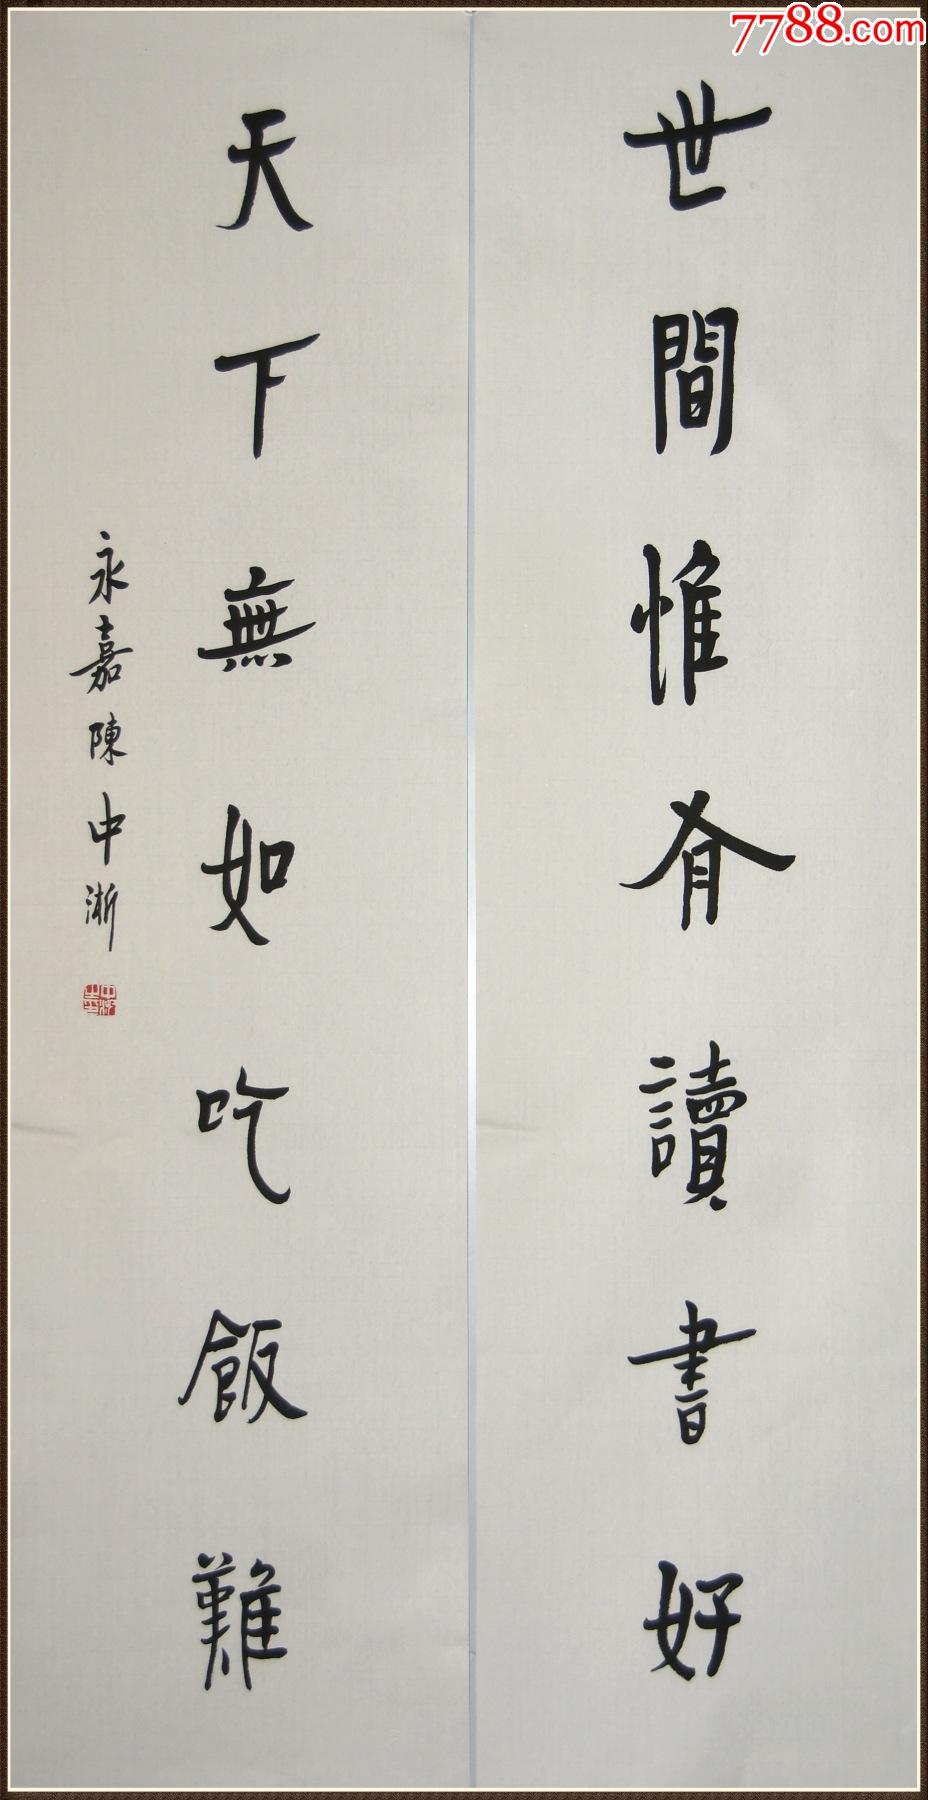 7788.com
世間惟有讀書好
天下無如吃飯難
永嘉陳中浙